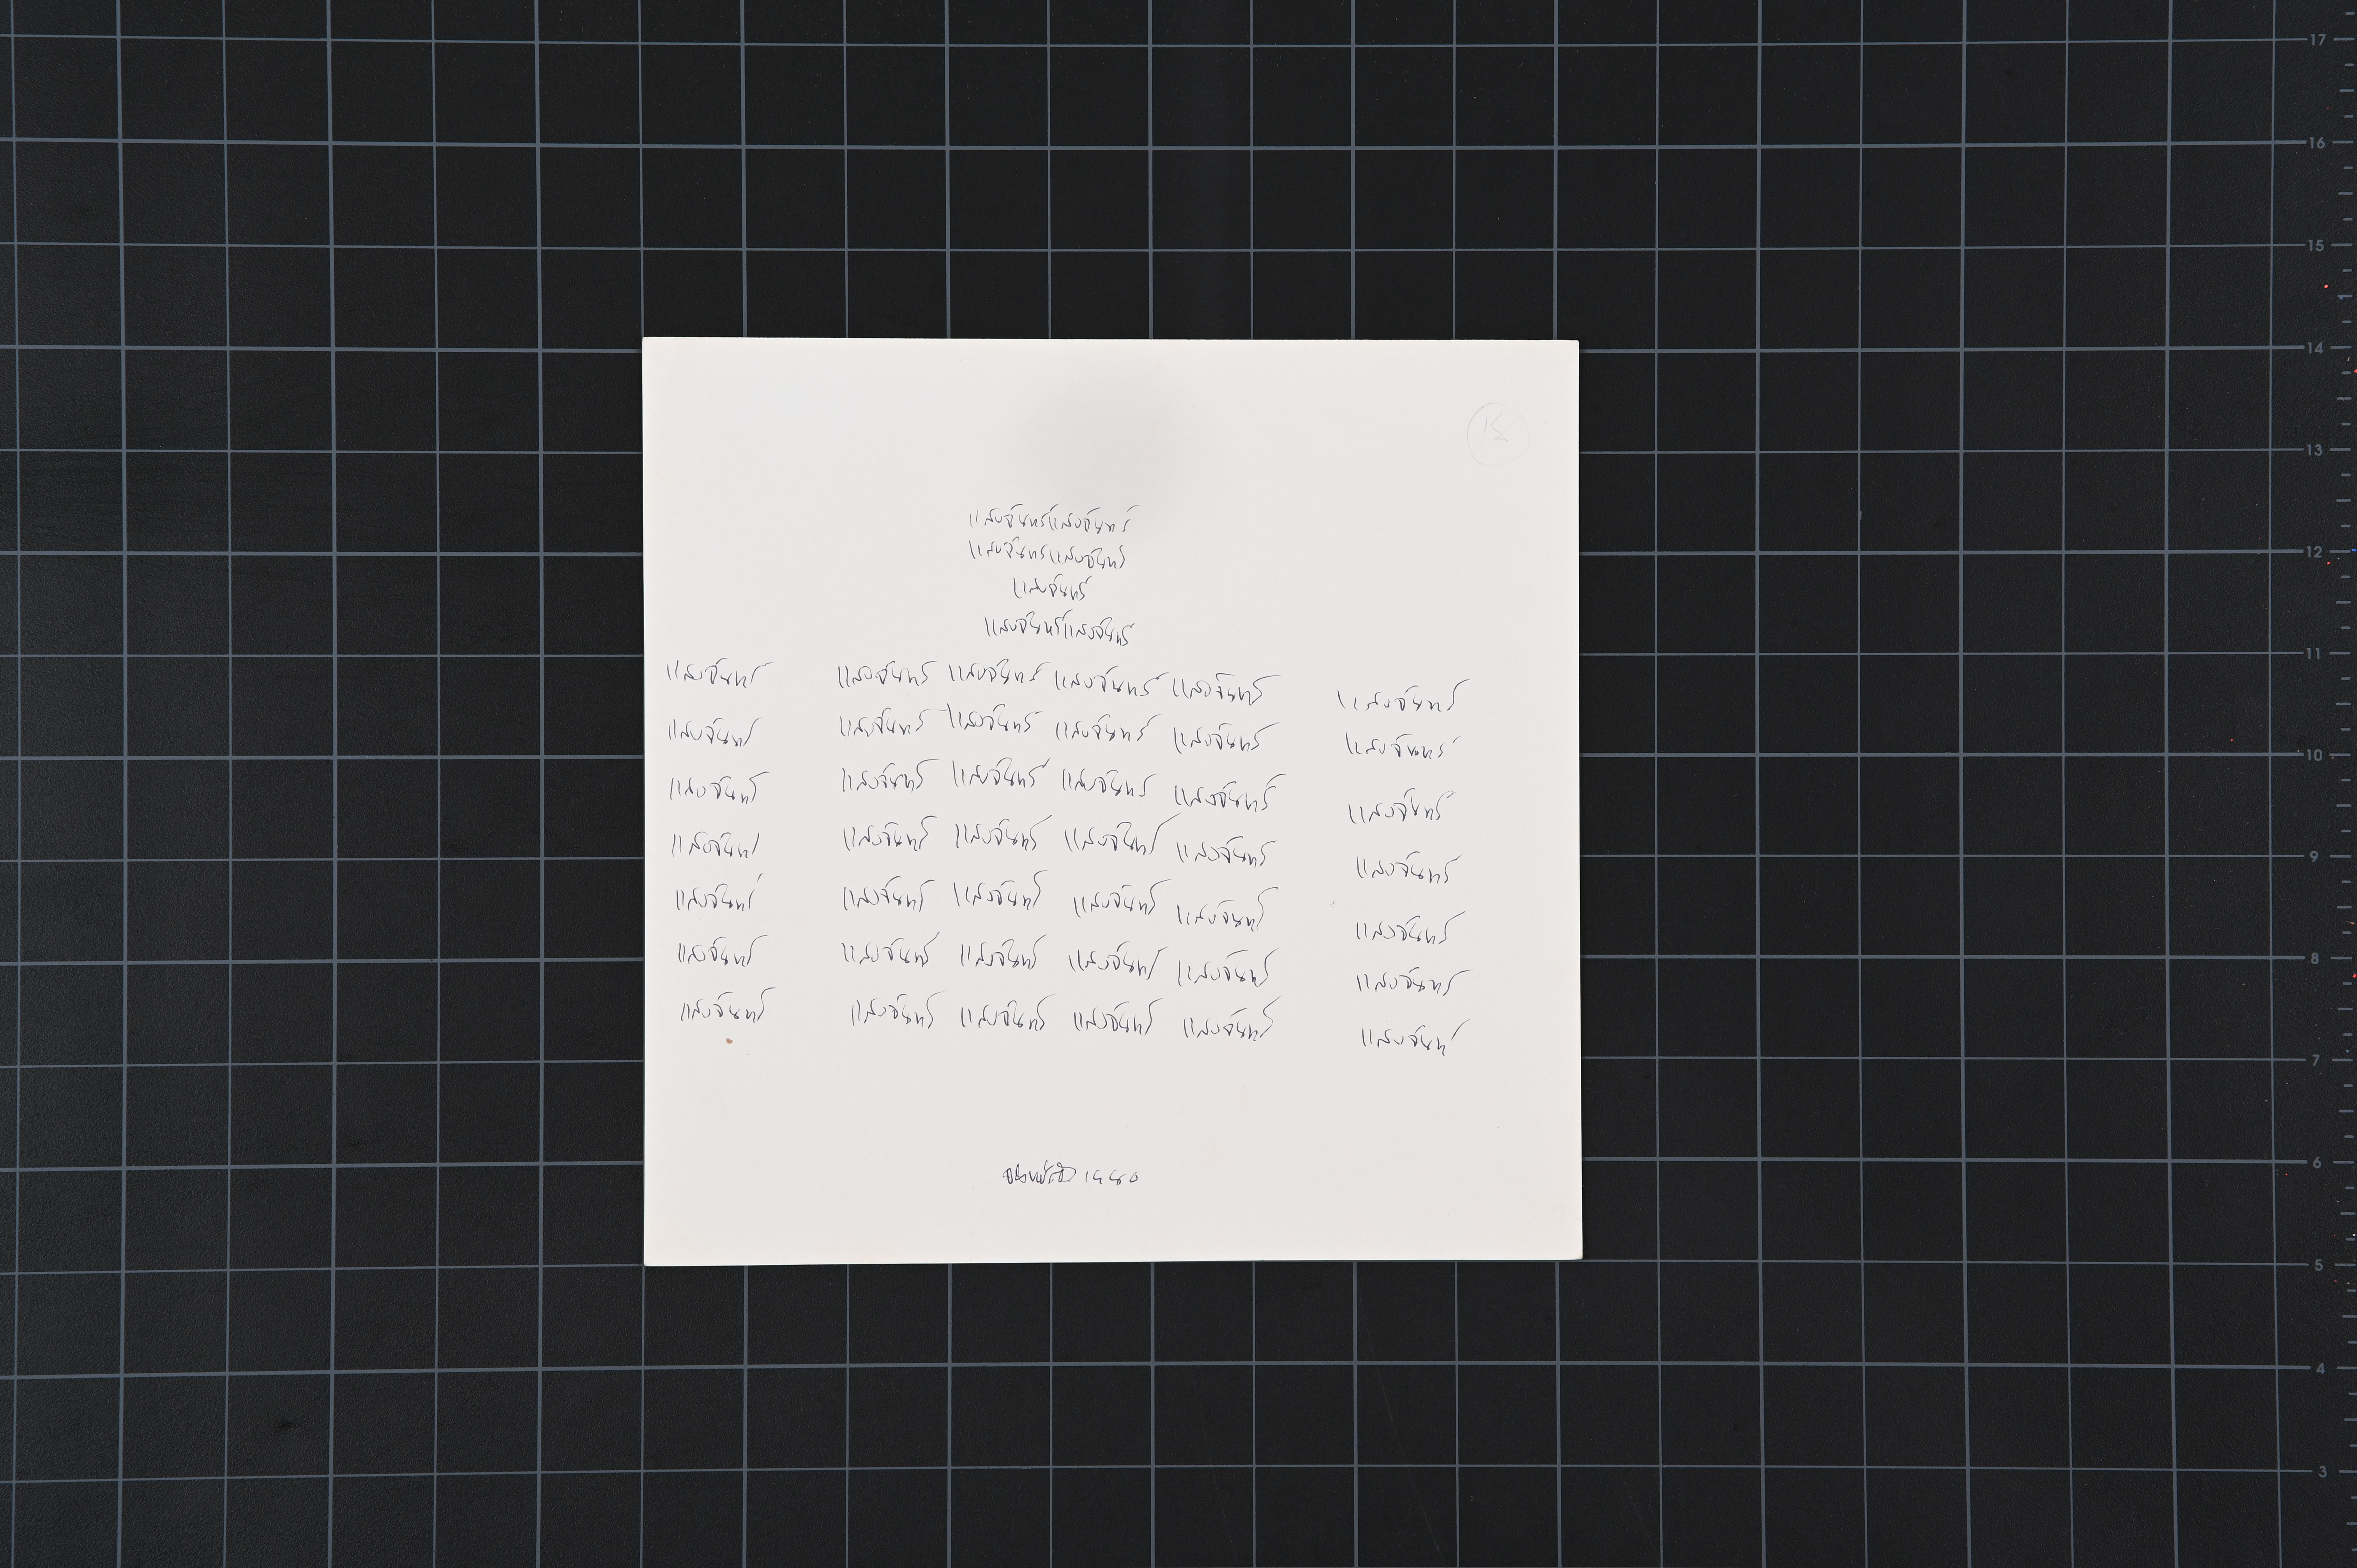 18
แสงจันทร์แสงจันทร์
แสงจันทร์แสงจันทร์
แสงจันทร์
แสงจันทร์แสงจันทร์
แสงจันทร์ แสงจันทร์ แสงจันทร์ แสงจันทร์ แสงจันทร์ แสงจันทร์
แสงจันทร์ แสงจันทร์ แสงจันทร์ แสงจันทร์ แสงจันทร์ แสงจันทร์
แสงจันทร์ แสงจันทร์ แสงจันทร์ แสงจันทร์ แสงจันทร์ แสงจันทร์
แสงจันทร์ แสงจันทร์ แสงจันทร์ แสงจันทร์ แสงจันทร์ แสงจันทร์
แสงจันทร์ แสงจันทร์ แสงจันทร์ แสงจันทร์ แสงจันทร์ แสงจันทร์
แสงจันทร์ แสงจันทร์ แสงจันทร์ แสงจันทร์ แสงจันทร์ แสงจันทร์
แสงจันทร์ แสงจันทร์ แสงจันทร์ แสงจันทร์ แสงจันทร์ แสงจันทร์
17
16
15
14
13
12
11
10
9
8
7
6
5
4
3